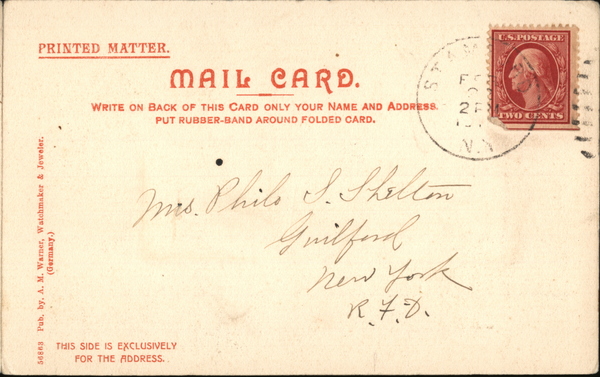 PRINTED MATTER.
MAIL CARD.
WRITE ON BACK OF THIS CARD ONLY YOUR NAME AND ADDRESS.
PUT RUBBER-BAND AROUND FOLDED CARD.
U.S. POSTAGE
TWO CENTS
STAM
2 PM
N.Y.
Mrs. Philo S. Shelton
Guilford
New York
R.F.D.
56863 Pub. by. A. M. Warner, Watchmaker & Jeweler.
(Germany.)
THIS SIDE IS EXCLUSIVELY
FOR THE ADDRESS.